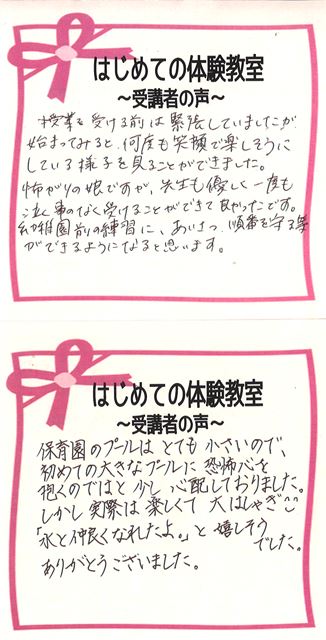 はじめての体験教室
～受講者の声～
授業を受ける前は緊張していましたが
始まってみると、何度も笑顔で楽しそうに
している様子を見ることができました。
怖がりの娘ですが、先生も優しく一度も
泣く事のなく受けることができて良かったです。
幼稚園前の練習に、あいさつ、順番を守る等
ができるようになると思います。
はじめての体験教室
～受講者の声～
保育園のプールはとても小さいので、
初めての大きなプールに恐怖心を
抱くのではと少し心配しておりました。
しかし実際は楽しくて大はしゃぎ
「水と仲良くなれたよ。」と嬉しそう
でした。
ありがとうございました。